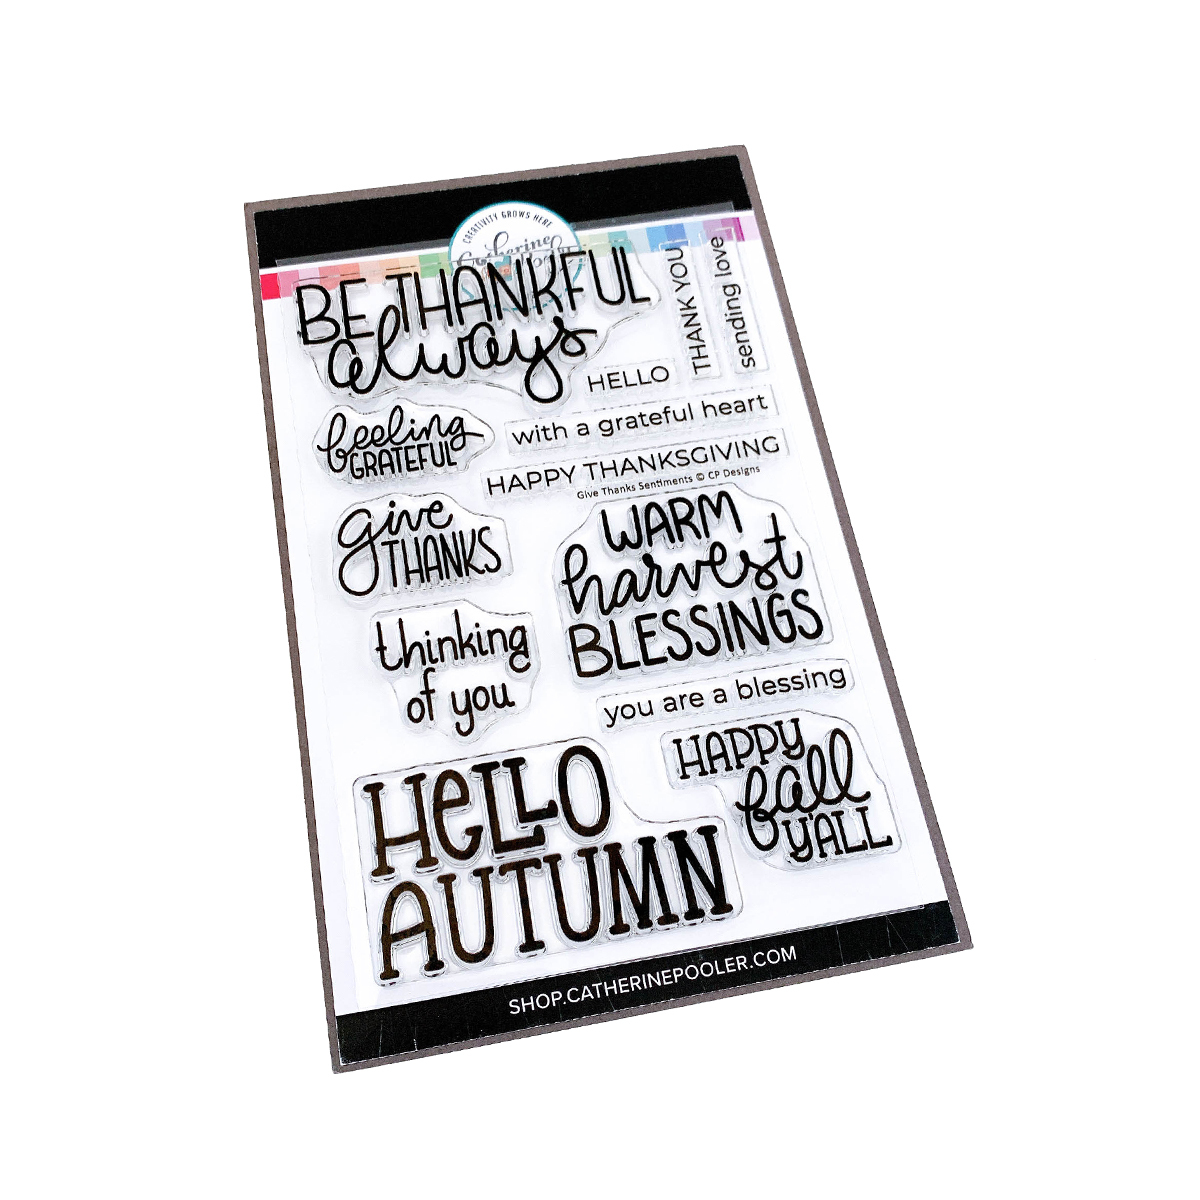 CREATIVITY GROWS HERE
Catherine
BE THANKFUL
always
THANK YOU
sending love
HELLO
feeling
GRATEFUL
with a grateful heart
HAPPY THANKSGIVING
Give Thanks Sentiments © CP Designs
give
THANKS
WARM
harvest
BLESSINGS
thinking
of you
you are a blessing
HAPPY
fall
Y'ALL
HELLO
AUTUMN
SHOP.CATHERINEPOOLER.COM